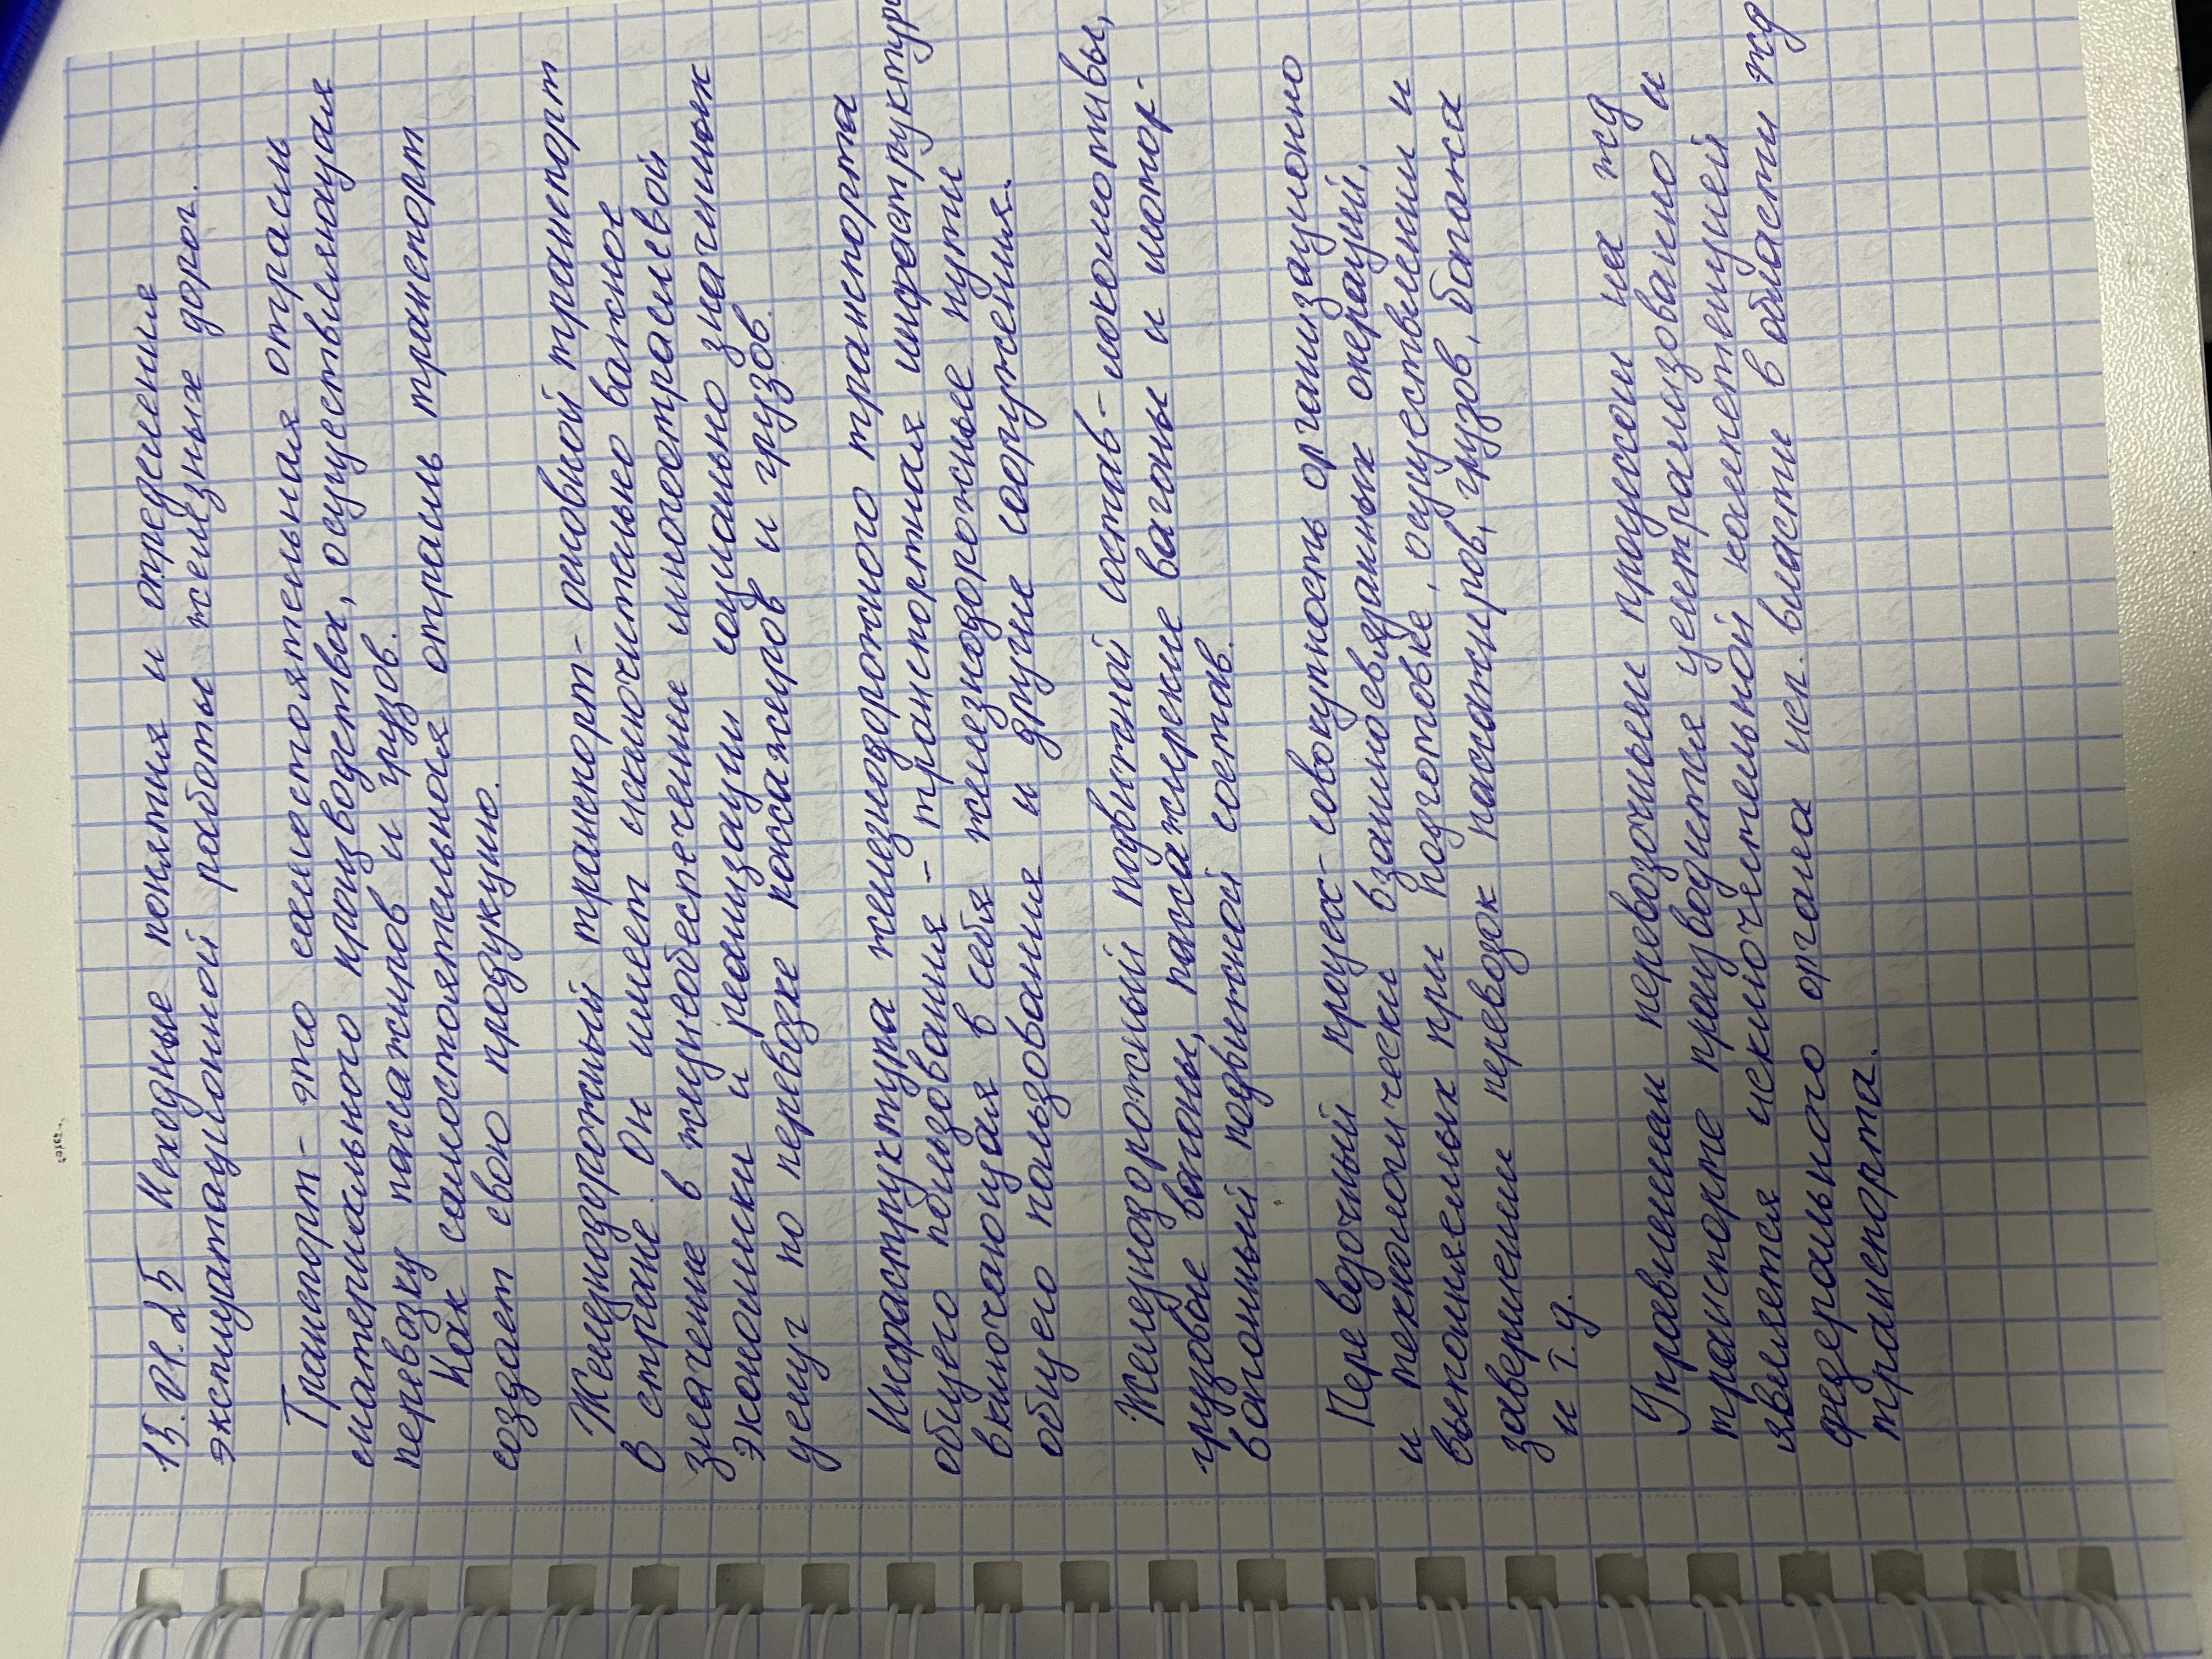 15.01.25 Исходные понятия и определения
эксплуатационной работы железных дорог.
Транспорт- это самостоятельная отрасль
материального производства, осуществляющая
перевозку пассажиров и грузов.
Как самостоятельная отрасль транспорт
создает свою продукцию.
Железнодорожный транспорт- основной транспорт
в стране. Он имеет исключительно важное
значение в жизнеобеспечение многоотраслевой
экономики и реализации социально значимых
услуг по перевозке пассажиров и грузов.
Инфраструктура железнодорожного транспорта
общего пользования - транспортная инфраструктура
включающая в себя железнодорожные пути
общего пользования и другие сооружения.
Железнодорожный подвижной состав- локомотивы,
грузовые вагоны, пассажирские вагоны и мотор-
вагонный подвижной состав.
Перевозочный процесс- совокупность организационно
и технологически взаимосвязанных операций,
выполняемых при подготовке, осуществлении и
завершении перевозок пассажиров, грузов, багажа
и т.д.
Управлением перевозочным процессом на жд
транспорте производится централизованно и
является исключительной компетенцией
федерального органа исп. власти в области жд
транспорта.